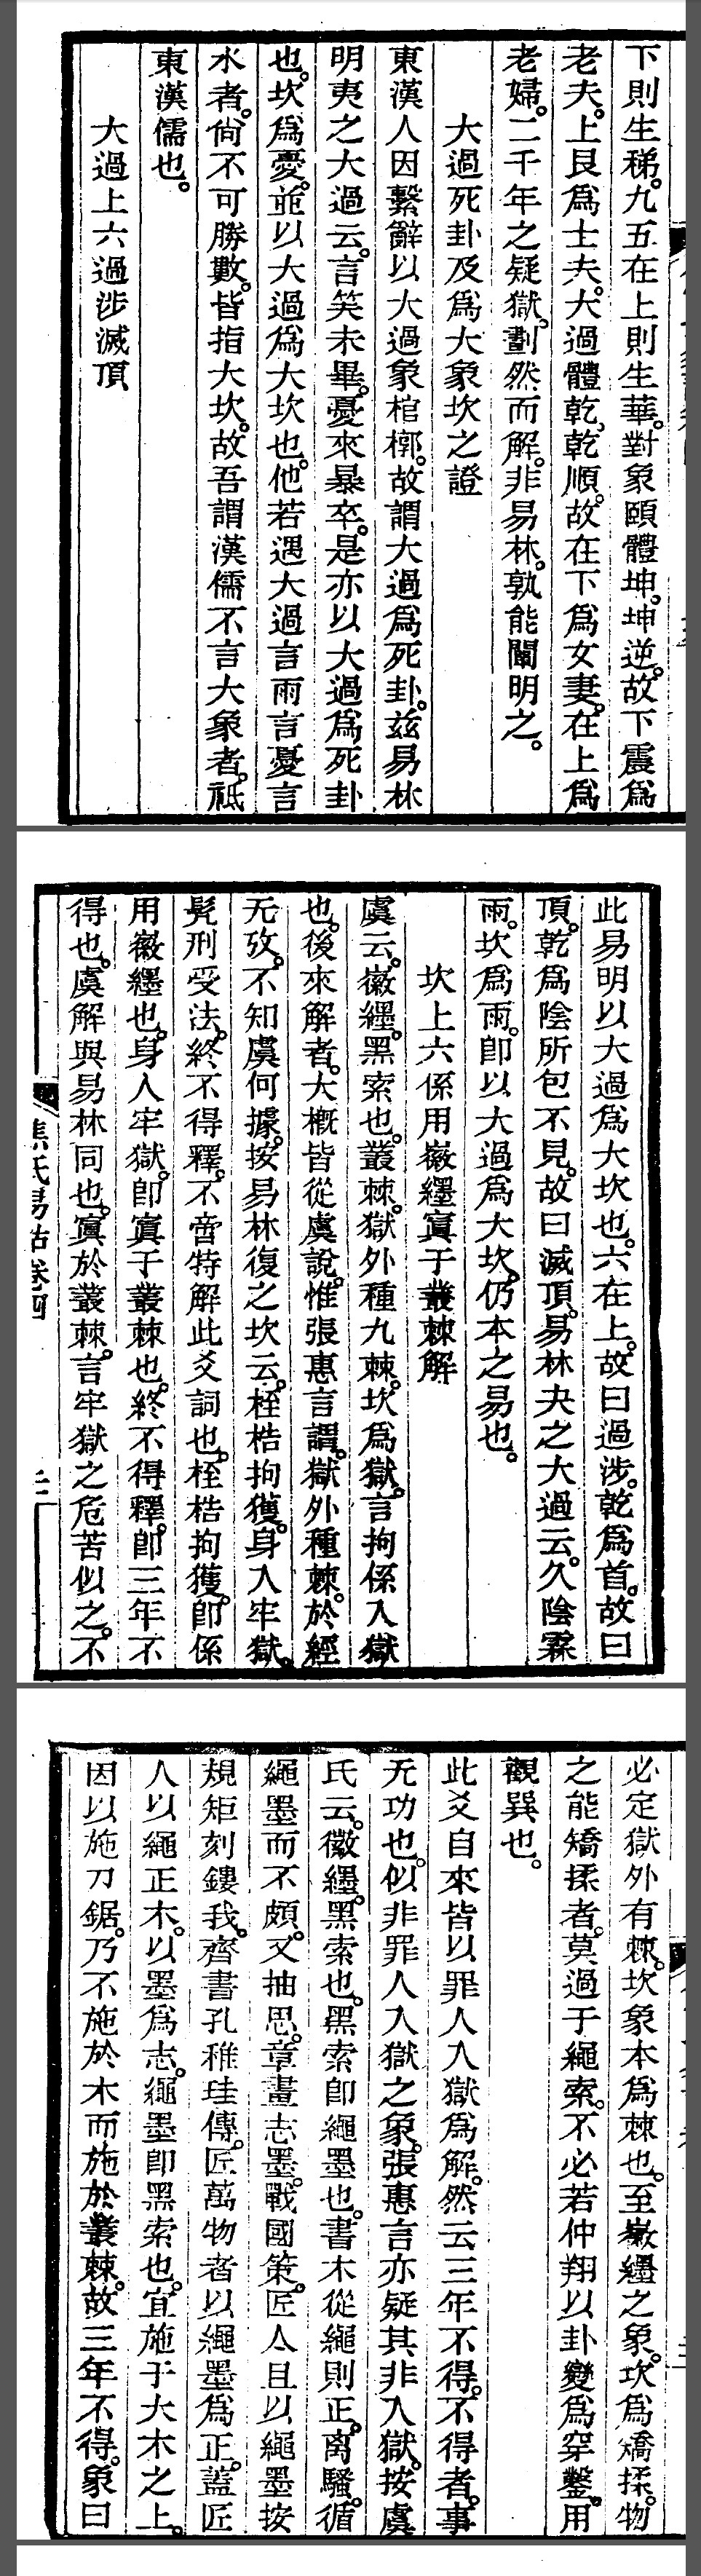 下則生稊。九五在上則生華。對象頤體坤。坤逆。故下震爲
老夫。上艮爲士夫。大過體乾、乾順。故在下爲女妻。在上爲
老婦。二千年之疑獄。劃然而解。非易林。孰能闡明之。
大過死卦及爲大象坎之證
東漢人因繫辭以大過象棺槨。故謂大過爲死卦。茲易林
明夷之大過云。言笑未畢。憂來暴卒。是亦以大過爲死卦
也。坎爲憂。並以大過爲大坎也。他若遇大過言雨言憂言
水者。尙不可勝數。皆指大坎。故吾謂漢儒不言大象者。祇
東漢儒也。
大過上六過涉滅頂
此易明以大過爲大坎也。六在上。故曰過涉。乾爲首。故曰
頂。乾爲陰所包不見。故曰滅頂。易林夬之大過云。久陰霖
雨。坎爲雨。卽以大過爲大坎。仍本之易也。
坎上六係用徽纆寘于叢棘解
虞云。徽纆。黑索也。叢棘。獄外種九棘。坎爲獄。言拘係入獄
也。後來解者。大概皆從虞說。惟張惠言謂。獄外種棘。於經
无攷。不知虞何據。按易林復之坎云。桎梏拘獲。身入牢獄。
髡刑受法。終不得釋。不啻特解此爻詞也。桎梏拘獲。卽係
用徽纆也。身入牢獄。卽寘于叢棘也。終不得釋。卽三年不
得也。虞解與易林同也。寘於叢棘。言牢獄之危苦似之。不
焦氏易詁卷四
必定獄外有棘。坎象本爲棘也。至徽纆之象。坎爲矯揉。物
之能矯揉者。莫過于繩索。不必若仲翔以卦變爲穿鑿。用
觀巽也。
此爻自來皆以罪人入獄爲解。然云三年不得。不得者。事
无功也。似非罪人入獄之象。張惠言亦疑其非入獄。按虞
氏云。徽纆。黑索也。黑索卽繩墨也。書木從繩則正。离騷。循
繩墨而不頗。又抽思。章畫志墨。戰國策。匠人且以繩墨按
規矩刻鏤我。齊書孔稚珪傳。匠萬物者以繩墨爲正。蓋匠
人以繩正木。以墨爲志。繩墨卽黑索也。宜施于大木之上。
因以施刀鋸。乃不施於木而施於叢棘。故三年不得。象曰